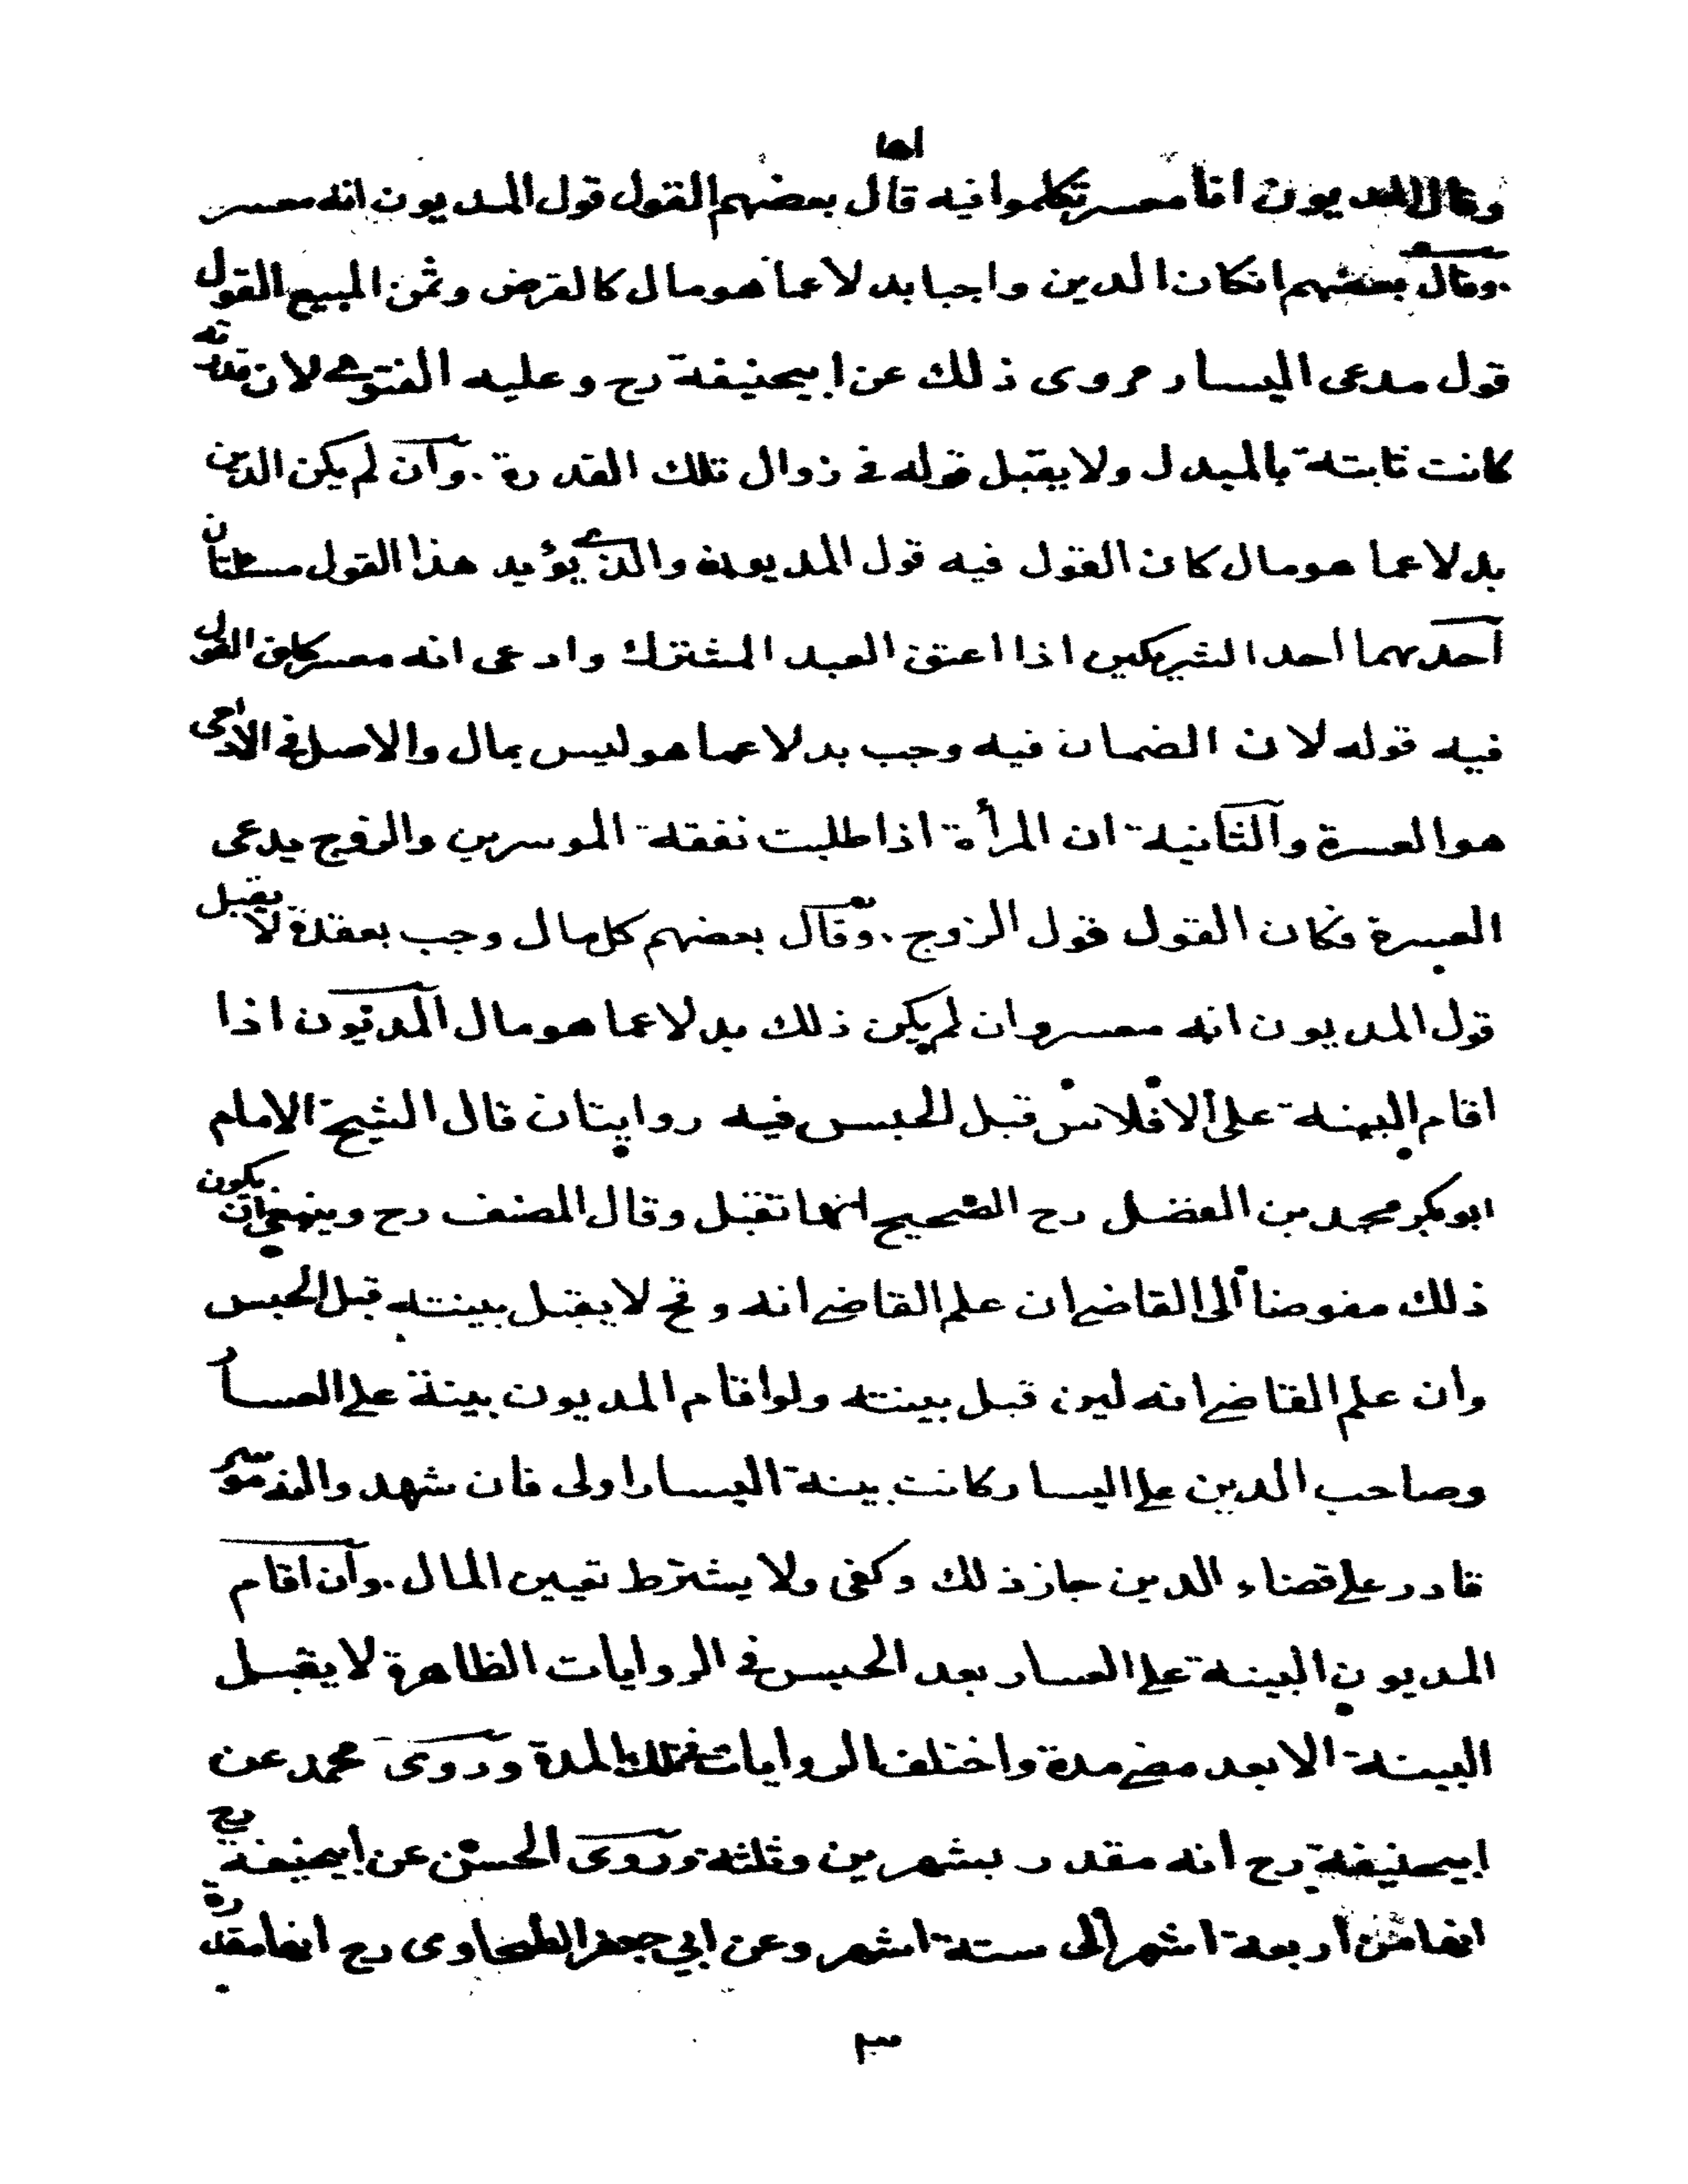 وقال المديون انا معسر تكلموا فيه قال بعضهم القول قول المديون انه معسر
وقال بعضهم انكان الدين واجبا بدلا عما هو مال كالقرض وثمن المبيع القول
قول مدعى اليسار مروى ذلك عن ابيحنيفة رح وعليه الفتوى لان قدرته
كانت ثابتة بالمبدل ولا يقبل قوله فى زوال تلك القدرة . وان لم يكن الدين
بدلا عما هو مال كان القول فيه قول المديون والذى يؤيد هذا القول مسئلتان
احديهما احد الشريكين اذا اعتق العبد المشترك وادعى انه معسر كان القول
فيه قوله لان الضمان فيه وجب بدلا عما هو ليس بمال والاصل فى الادمى
هو العسرة والثانية ان المرأة اذا طلبت نفقة الموسرين والزوج يدعى
العسرة فكان القول قول الزوج . وقال بعضهم كل مال وجب بعقدة لا يقبل
قول المديون انه معسر وان لم يكن ذلك بدلا عما هو مال المديون اذا
اقام البينة على الافلاس قبل الحبس فيه روايتان قال الشيخ الامام
ابو بكر محمد بن الفضل رح الصحيح انها تقبل وقال المصنف رح وينبغى ان يكون
ذلك مفوضا الى القاضى ان علم القاضى انه وقح لا يقبل بينته قبل الحبس
وان علم القاضى انه لين قبل بينته ولو اقام المديون بينة على العسار
وصاحب الدين على اليسار كانت بينة اليسار اولى فان شهدوا انه موسر
قادر على قضاء الدين جاز ذلك وكفى ولا يشترط تعيين المال . وان اقام
المديون البينة على العسار بعد الحبس فى الروايات الظاهرة لا يقبل
البينة الا بعد مضى مدة واختلف الروايات فى تلك المدة وروى محمد عن
ابيحنيفة رح انه مقدر بشهرين وثلثة وروى الحسن عن ابيحنيفة رح
انها من اربعة اشهر الى ستة اشهر وعن ابي جعفر الطحاوى رح انها مقدرة